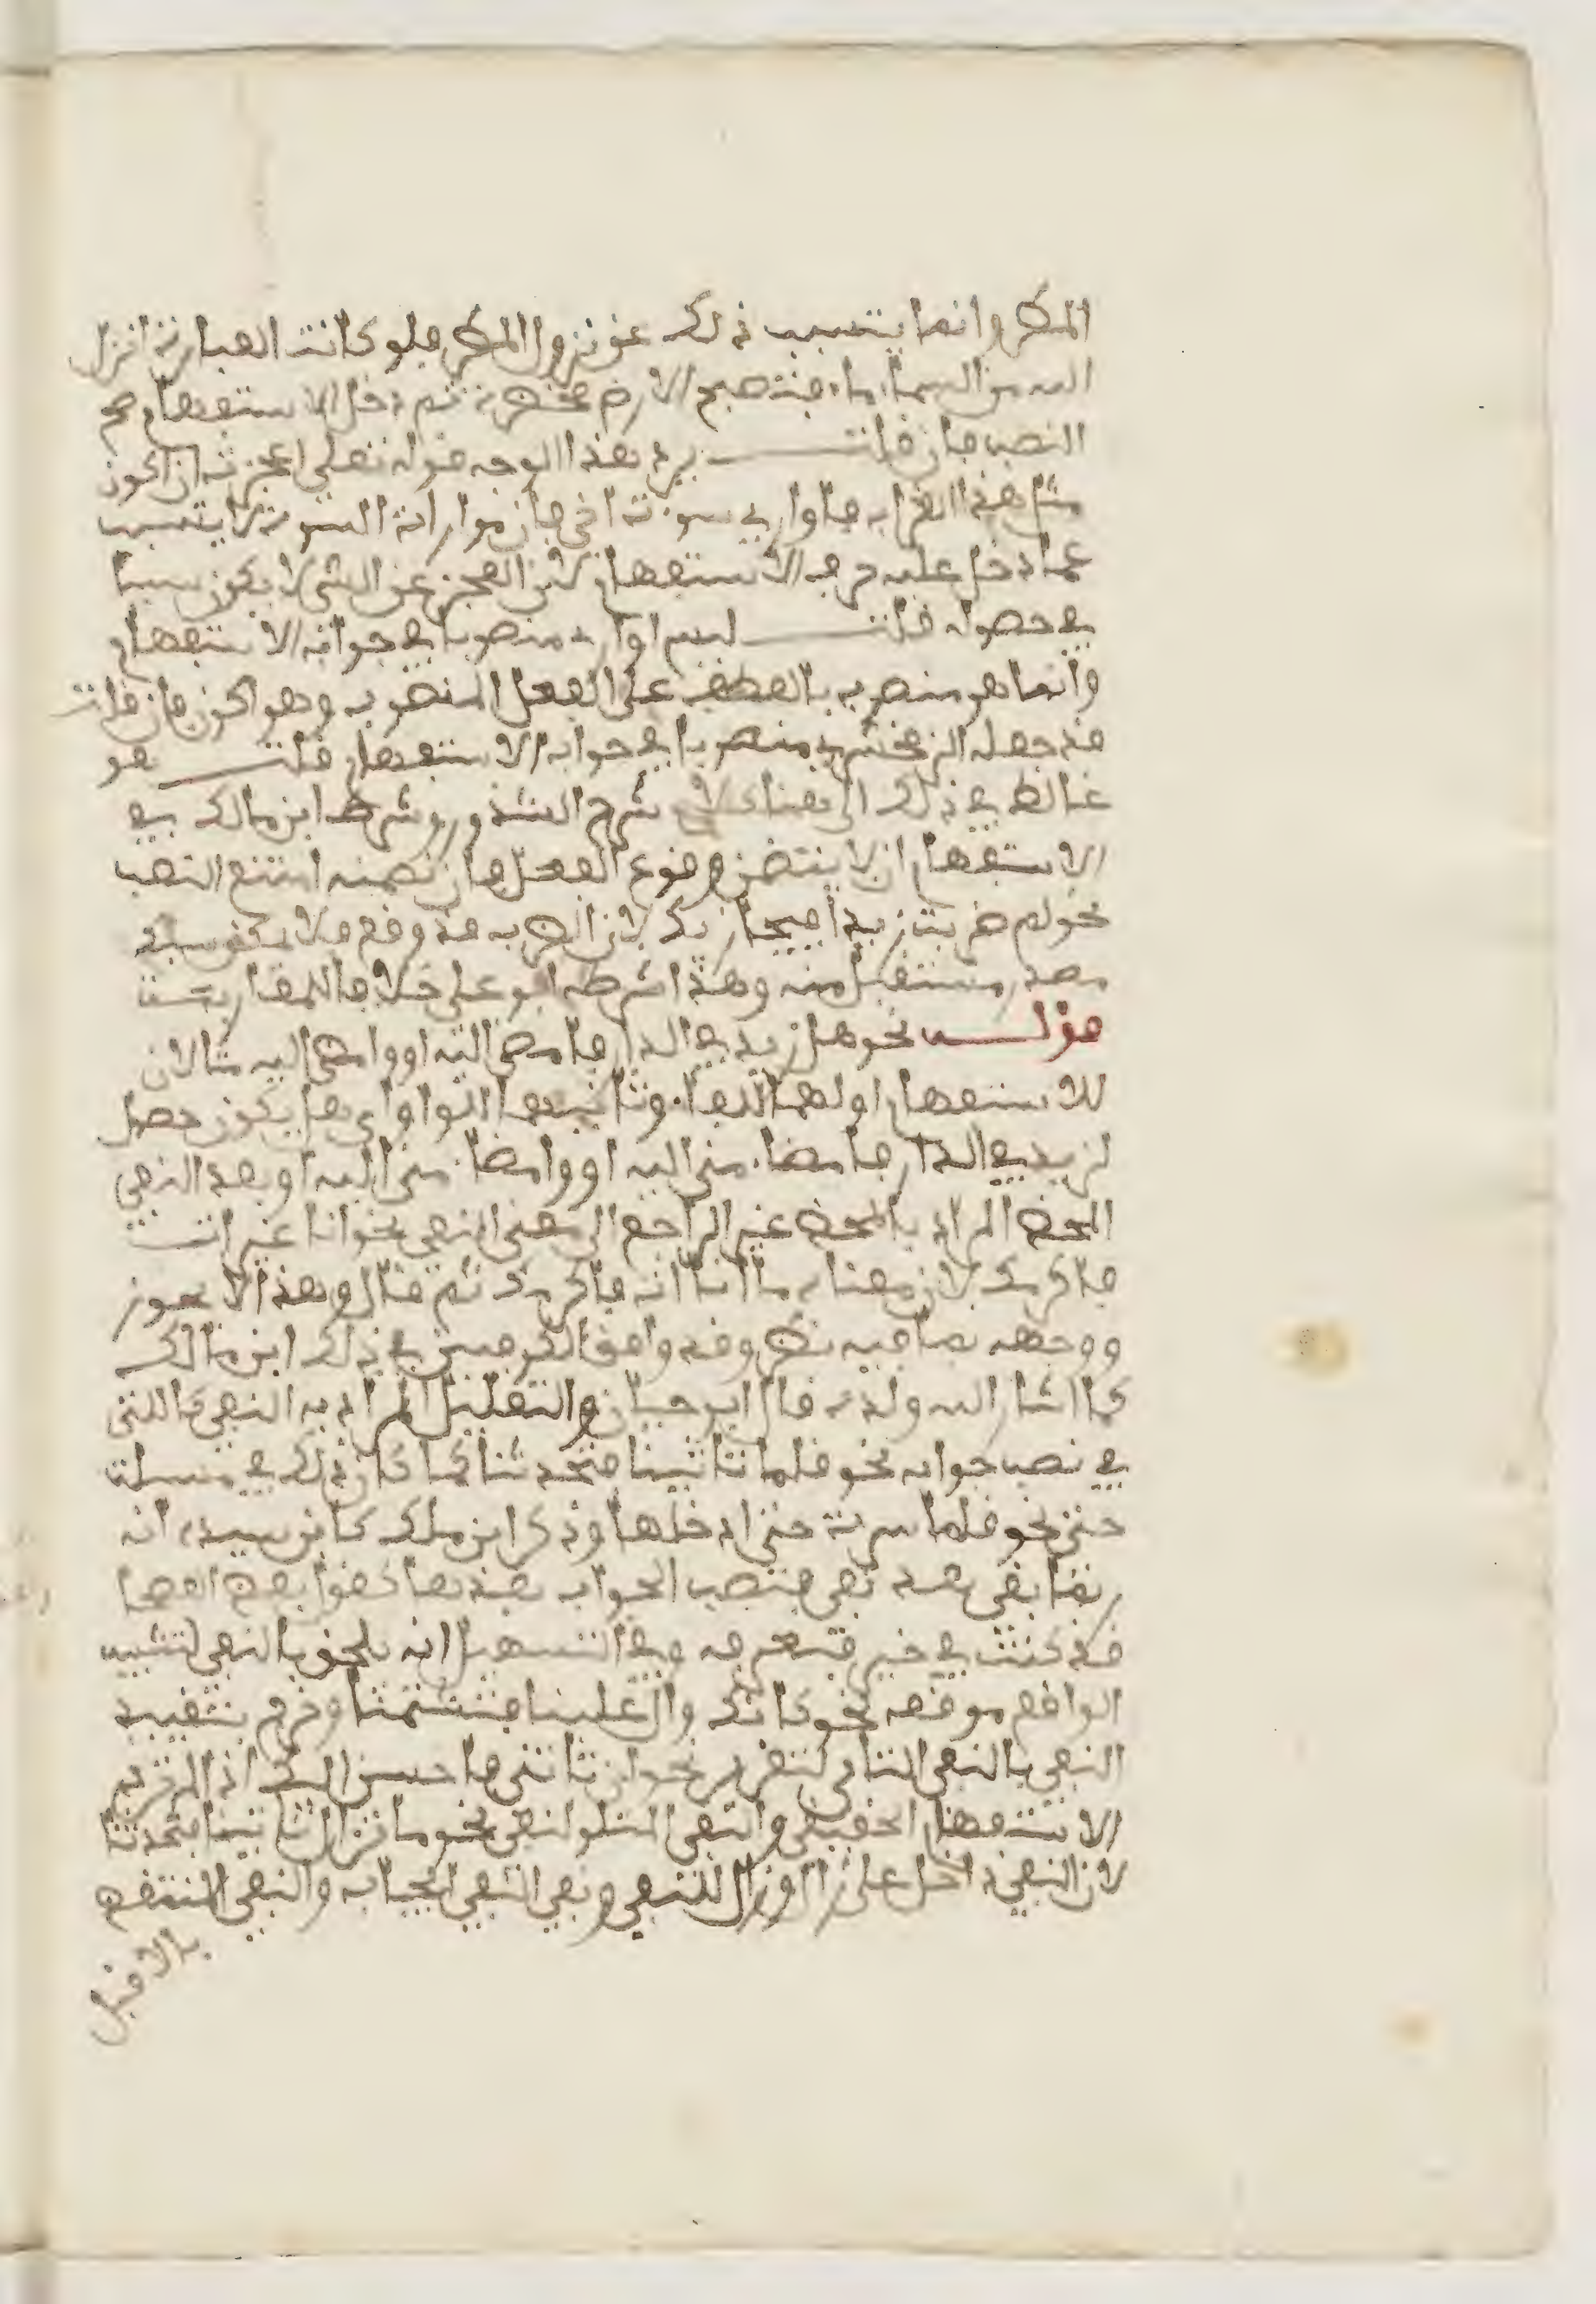 المطر وانما يتسبب ذلك عن نزول المطر فلو كانت العبارة انزل
الله من السماء ماء فتصبح الارض مخضرة ثم دخل الاستفهام صح
النصب فان قلت يرد هذا الوجه قوله تعلى اعجزت ان اكون
مثل هذا الغراب فاواري سوءة اخي فان مواراة السوءة لا يتسبب
عما دخل عليه حرف الاستفهام لان العجز عن الشي لا يكون سببا
في حصوله قلت ليس اواري منصوبا في جواب الاستفهام
وانما هو منصوب بالعطف على الفعل المنصوب وهو اكون فان قلت
قد جعله الزمخشري منصوبا في جواب الاستفهام قلت هو
غالط في ذلك الى هنا كلام شرح الشذور وشرط ابن مالك في
الاستفهام ان لا يتضمن وقوع الفعل فان تضمنه امتنع النصب
نحو لم ضربت زيدا فيجازيك لان الضرب قد وقع فلا يمكن سبك
مصدر مستقبل منه وهذا شرطه ابو علي خلافا للمغاربة
قولـه نحو هل زيد في الدار فامضي اليه او وامضي اليه مثالان
للاستفهام اولهما للفاء وثانيهما للواو اي هل يكون حصل
لزيد في الدار فامضاء مني اليه او وامضاء مني اليه او بعد النفي
المحض المراد بالمحض غير الراجع الى معنى النفي نحو انا غير ات
فاكرمك لان معناه ما انا ات فاكرمك ثم قال وهذا لا يجوز
ووجهه بما فيه نظر وقد وافق الكوفيين في ذلك ابن مالك
كما اشار اليه ولده قال ابو حيان والتقليل المراد به النفي كالنفي
في نصب جوابه نحو قلما تاتينا فتحدثنا كما كان ذلك في مسلة
حتى نحو قلما سرت حتى ادخلها وذكر ابن ملك كابن سيده انه
ربما نفي بقد نفي فينصب الجواب بعدها كقول بعض الفصحا
قد كنت في خير فتعرفه وفي التسهيل انه يلحق بالنفي التشبيه
الواقع موقعه نحو كانك وال علينا فتشتمنا وخرج بتقييد
النفي بالنفي التالي لتقرير نحو الم تاتني فاحسن اليك اذا لم ترد
الاستفهام الحقيقي والنفي المتلو لنفي نحو ما تزال تاتينا فتحدثنا
لان النفي داخل على زال وزال للنفي ونفي النفي ايجاب والنفي المنتقض
بالا قبل